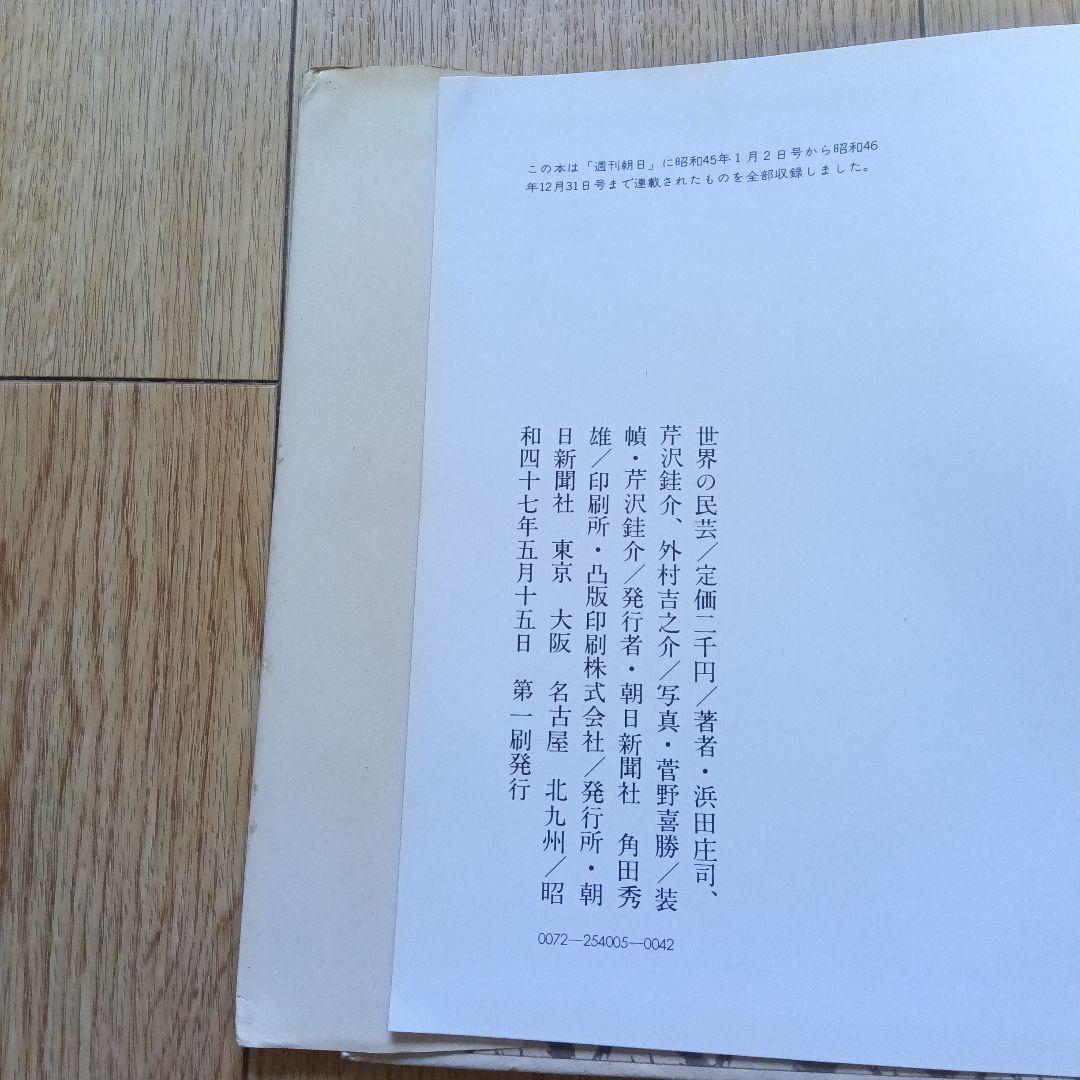 この本は「週刊朝日」に昭和45年1月2日号から昭和46
年12月31日号まで連載されたものを全部収録しました。
世界の民芸/定価二千円/著者・浜田庄司、
芹沢銈介、外村吉之介/写真・菅野喜勝/装
幀・芹沢銈介/発行者・朝日新聞社 角田秀
雄/印刷所・凸版印刷株式会社/発行所・朝
日新聞社 東京 大阪 名古屋 北九州/昭
和四十七年五月十五日 第一刷発行
0072—254005—0042